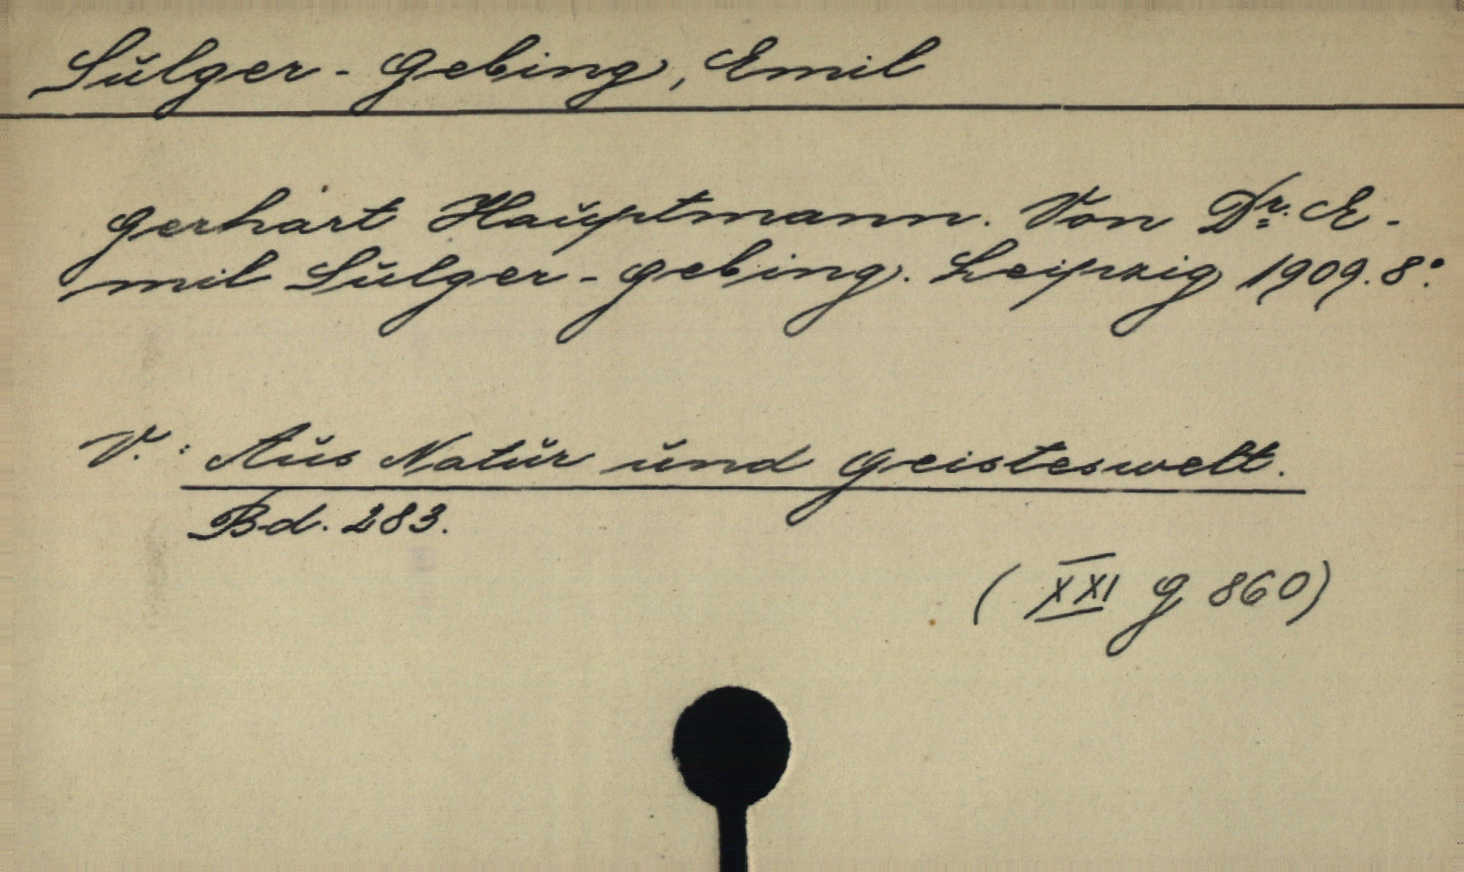 Sulger-Gebing, Emil
Gerhart Hauptmann. Von Dr. E-
mil Sulger-Gebing. Leipzig 1909. 8°.
V.: Aus Natur und Geisteswelt.
Bd. 283.
(XXI G 860)